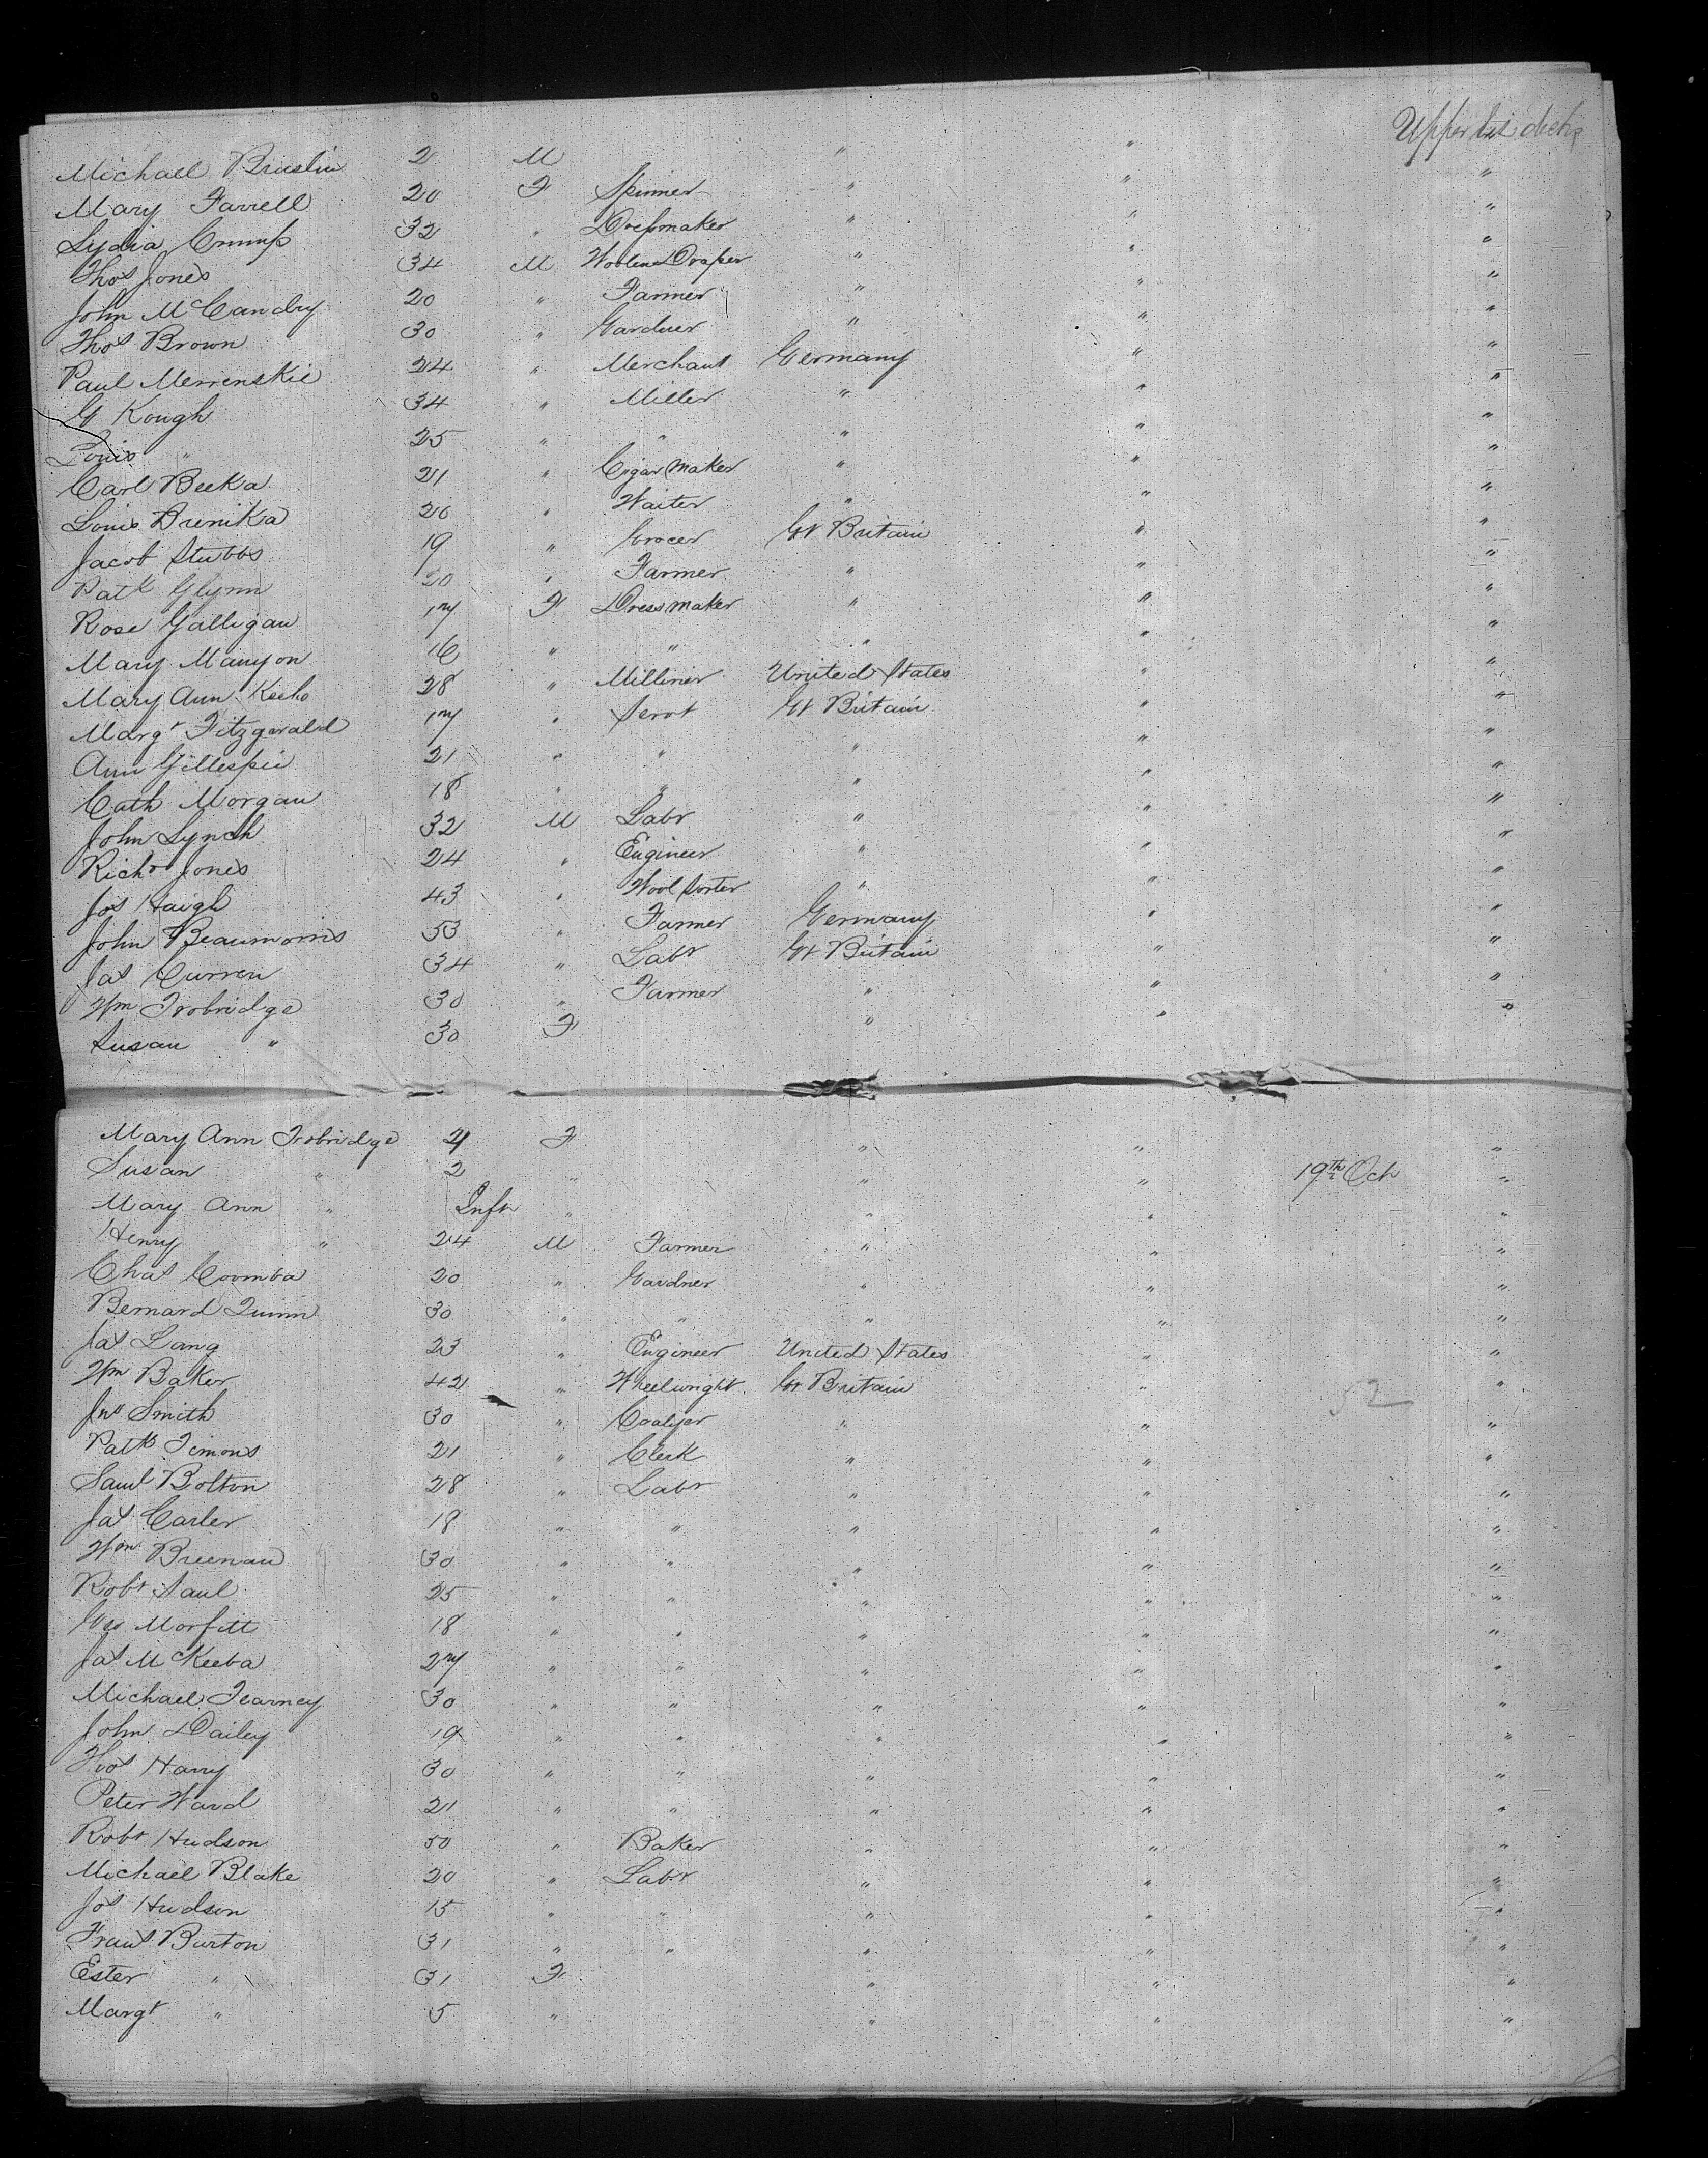 Upper bet decks
Michael Bruslin 2 M " " "
Mary Farrell 20 F Spinner " " "
Lydia Crump 32 " Dressmaker " " "
Thos Jones 34 M Woolen Draper " " "
John McCandry 20 " Farmer " " "
Thos Brown 30 " Garduer " " "
Paul Merrenskie 24 " Merchant Germany " "
G Kough 34 " Miller " " "
Louis " 25 " " " " "
Carl Beeka 21 " Cigar Maker " " "
Louis Brenika 20 " Waiter " " "
Jacob Stubbs 19 " Grocer Gt Britain " "
Patk Glynn 20 " Farmer " " "
Rose Galligan 17 F Dressmaker " " "
Mary Manyon 16 " " " " "
Mary Ann Keeho 28 " Milliner United States " "
Margt Fitzgerald 17 " Servt Gt Britain " "
Ann Gillespie 21 " " " " "
Cath Morgan 18 " " " " "
John Lynch 32 M Labr " " "
Richd Jones 24 " Engineer " " "
Jos Haigh 43 " Wool Sorter " " "
John Beaumorris 53 " Farmer Germany " "
Jas Curren 34 " Labr Gt Britain " "
Wm Trobridge 30 " Farmer " " "
Susan " 30 F " " "
Mary Ann Trobridge 4 F " " "
Susan " 2 " " " 19th Oct "
Mary Ann " Inft " " " "
Henry " 24 M Farmer " " "
Chas Coomba 20 " Gardner " " "
Bernard Quinn 30 " " " " "
Jas Lang 23 " Engineer United States " "
Wm Baker 42 " Wheelwright Gt Britain " 52 "
Jno Smith 30 " Coalyer " " "
Patk Timons 21 " Clerk " " "
Saml Bolton 28 " Labr " " "
Jas Carler 18 " " " " "
Wm Breenan 30 " " " " "
Robt Saul 25 " " " " "
Geo Morfitt 18 " " " " "
Jas McKeeba 27 " " " " "
Michael Tearney 30 " " " " "
John Dailey 19 " " " " "
Thos Harry 30 " " " " "
Peter Ward 21 " " " " "
Robt Hudson 50 " Baker " " "
Michael Blake 20 " Labr " " "
Jos Hudson 15 " " " " "
Frans Burton 31 " " " " "
Ester " 31 F " " "
Margt " 5 " " " "